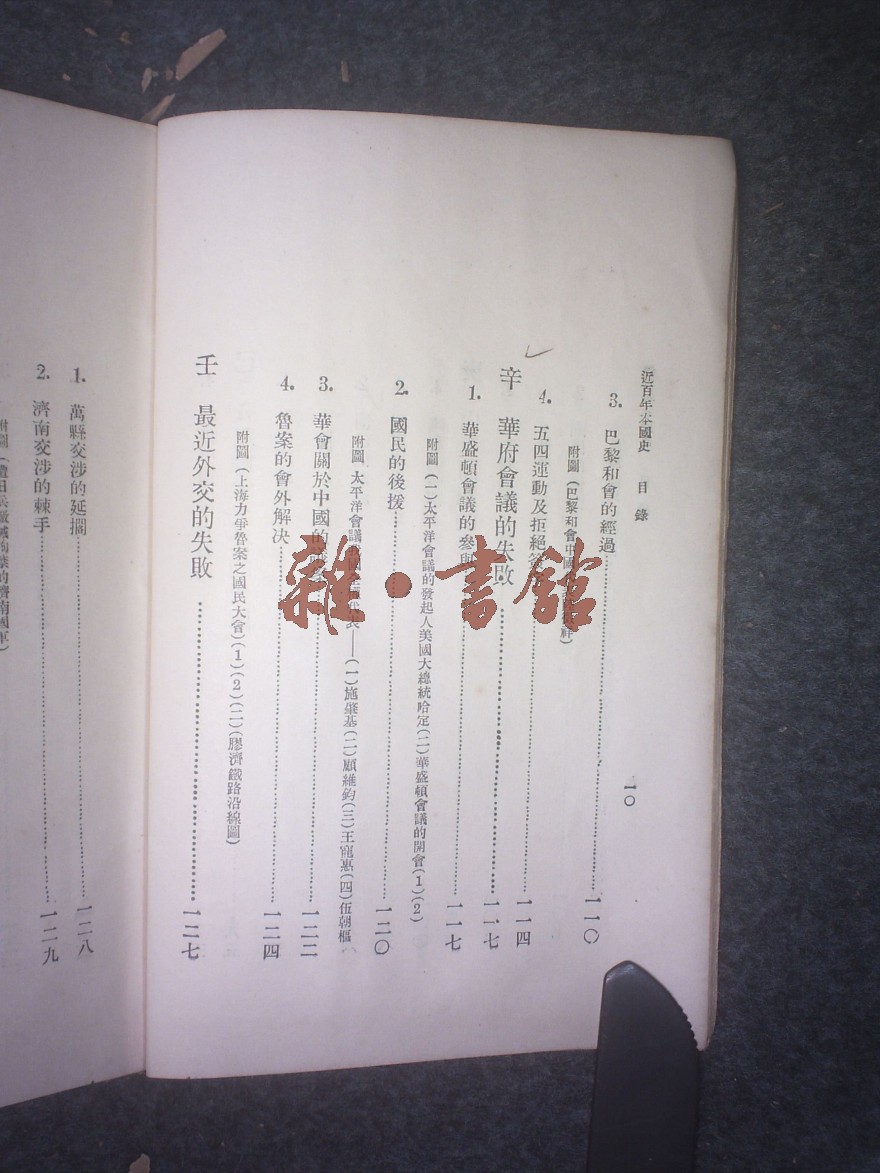 近百年本國史 目錄 一〇
3. 巴黎和會的經過 一一〇
附圖(巴黎和會中國
4. 五四運動及拒絕簽 一一四
辛 華府會議的失敗 一一七
1. 華盛頓會議的參與 一一七
附圖(一)太平洋會議的發起人美國大總統哈定(二)華盛頓會議的開會(1)(2)
2. 國民的後援 一二〇
附圖 太平洋會議 代表——(一)施肇基(二)顧維鈞(三)王寵惠(四)伍朝樞
3. 華會關於中國的 一二二
4. 魯案的會外解決 一二四
附圖(上海力爭魯案之國民大會)(1)(2)(二)(膠濟鐵路沿線圖)
壬 最近外交的失敗 一二七
1. 萬縣交涉的延擱 一二八
2. 濟南交涉的棘手 一二九
的濟南國軍)
雜·書館